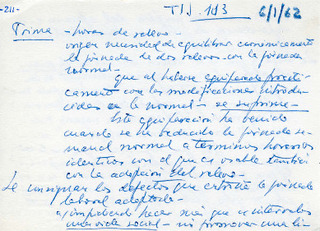 -211-
TIJ. 113
6/1/62
Prima - horas de relevo -
origen necesidad de equilibrar economicamente
la jornada de dos relevos con la jornada
normal -
que al haberse equiparado practi-
camente con las modificaciones introdu-
cidas en la normal - se suprime -
Esta equiparación ha venido
cuando se ha reducido la jornada se-
manal normal a terminos horarios
identicos con el que es usable también
con la adopción del relevo -
Se consignan los defectos que entraña la jornada
laboral adoptada -
a) impidiendo hacer más que a intervalos
una vida social - ni promover una li-